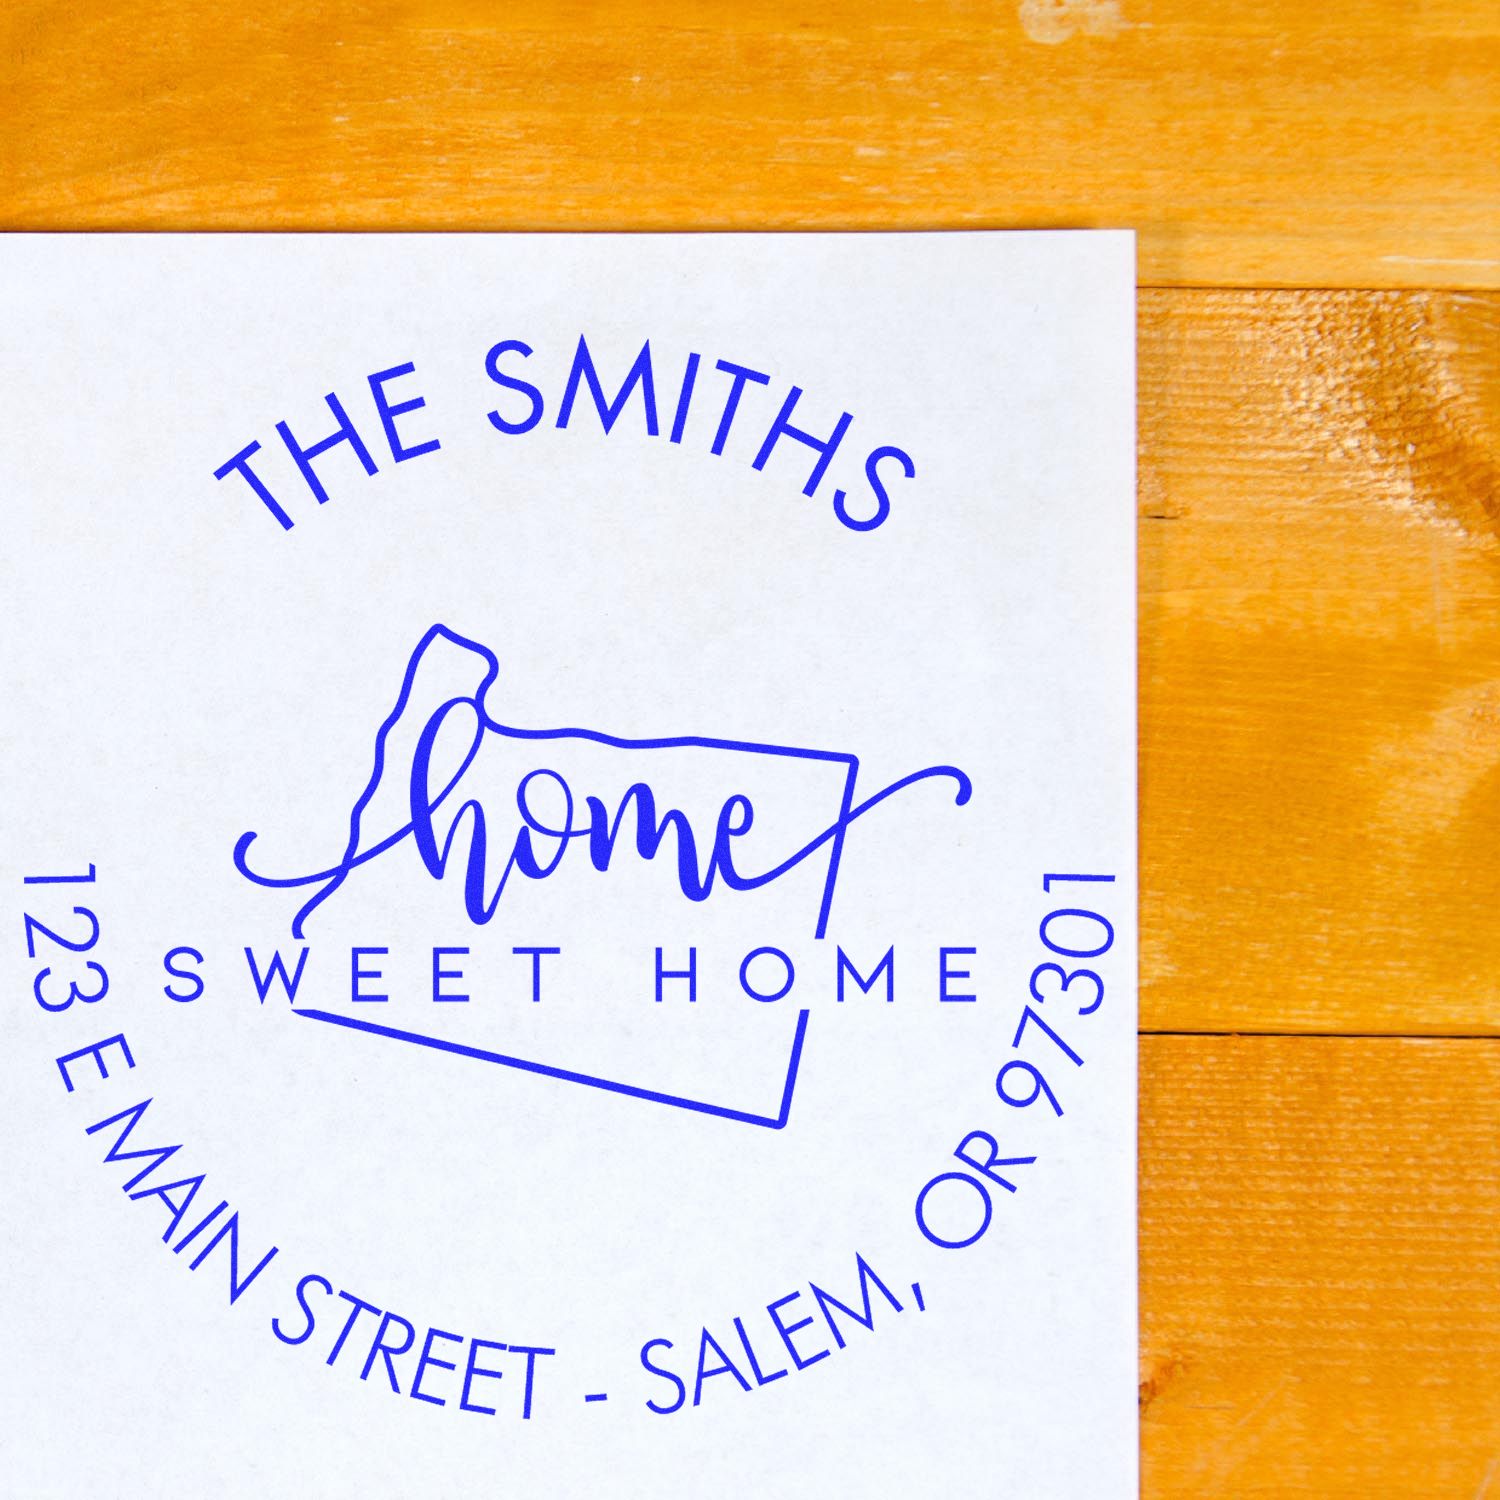 THE SMITHS
home
SWEET HOME
123 E MAIN STREET - SALEM, OR 97301